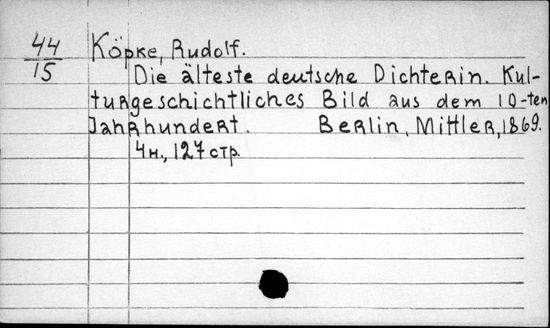 44/15 Köpke, Rudolf.
Die älteste deutsche Dichterin. Kul-
turgeschichtliches Bild aus dem 10-ten
Jahrhundert. Berlin, Mittler, 1869.
4н., 127 стр.